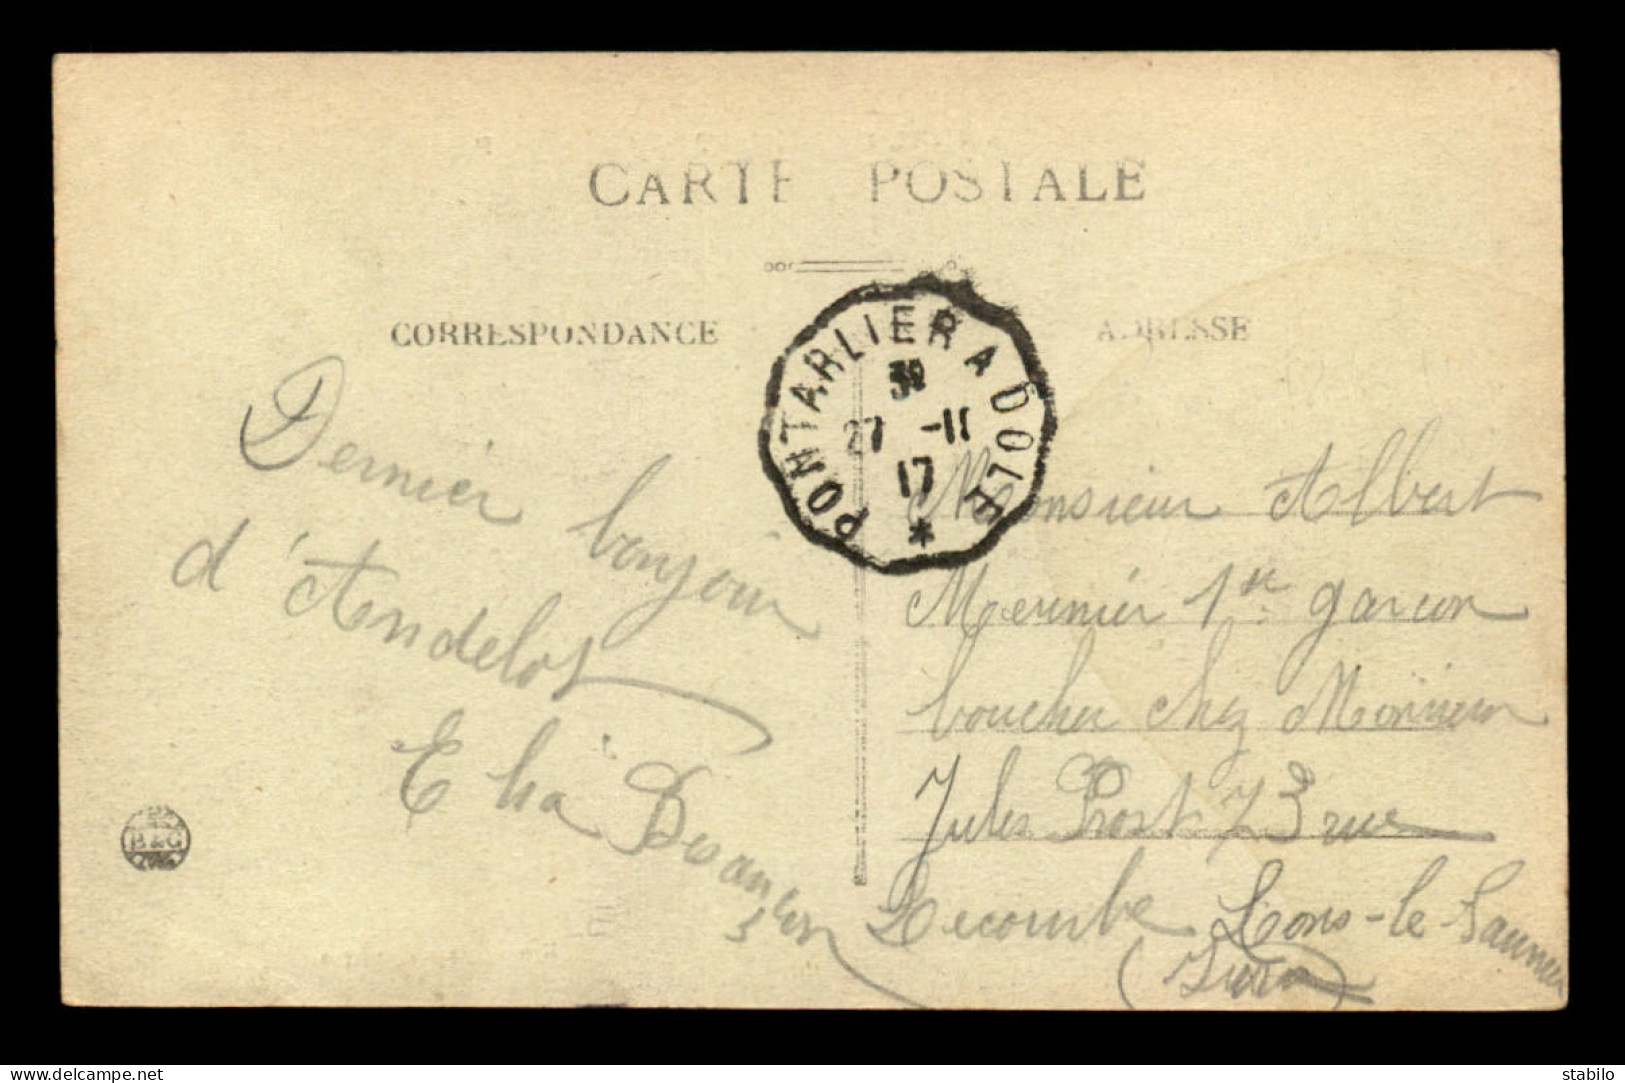 CARTE POSTALE
CORRESPONDANCE
ADRESSE
PONTARLIER A DOLE
27 -11
17
*
Dernier bonjour
d'Andelot
Monsieur Albert
Mermier 1er garcon
boucher chez Monsieur
Jules Prost 73 rue
Lecourbe Lons-le Saunier
(Jura)
B & C
www.delcampe.net
stabilo